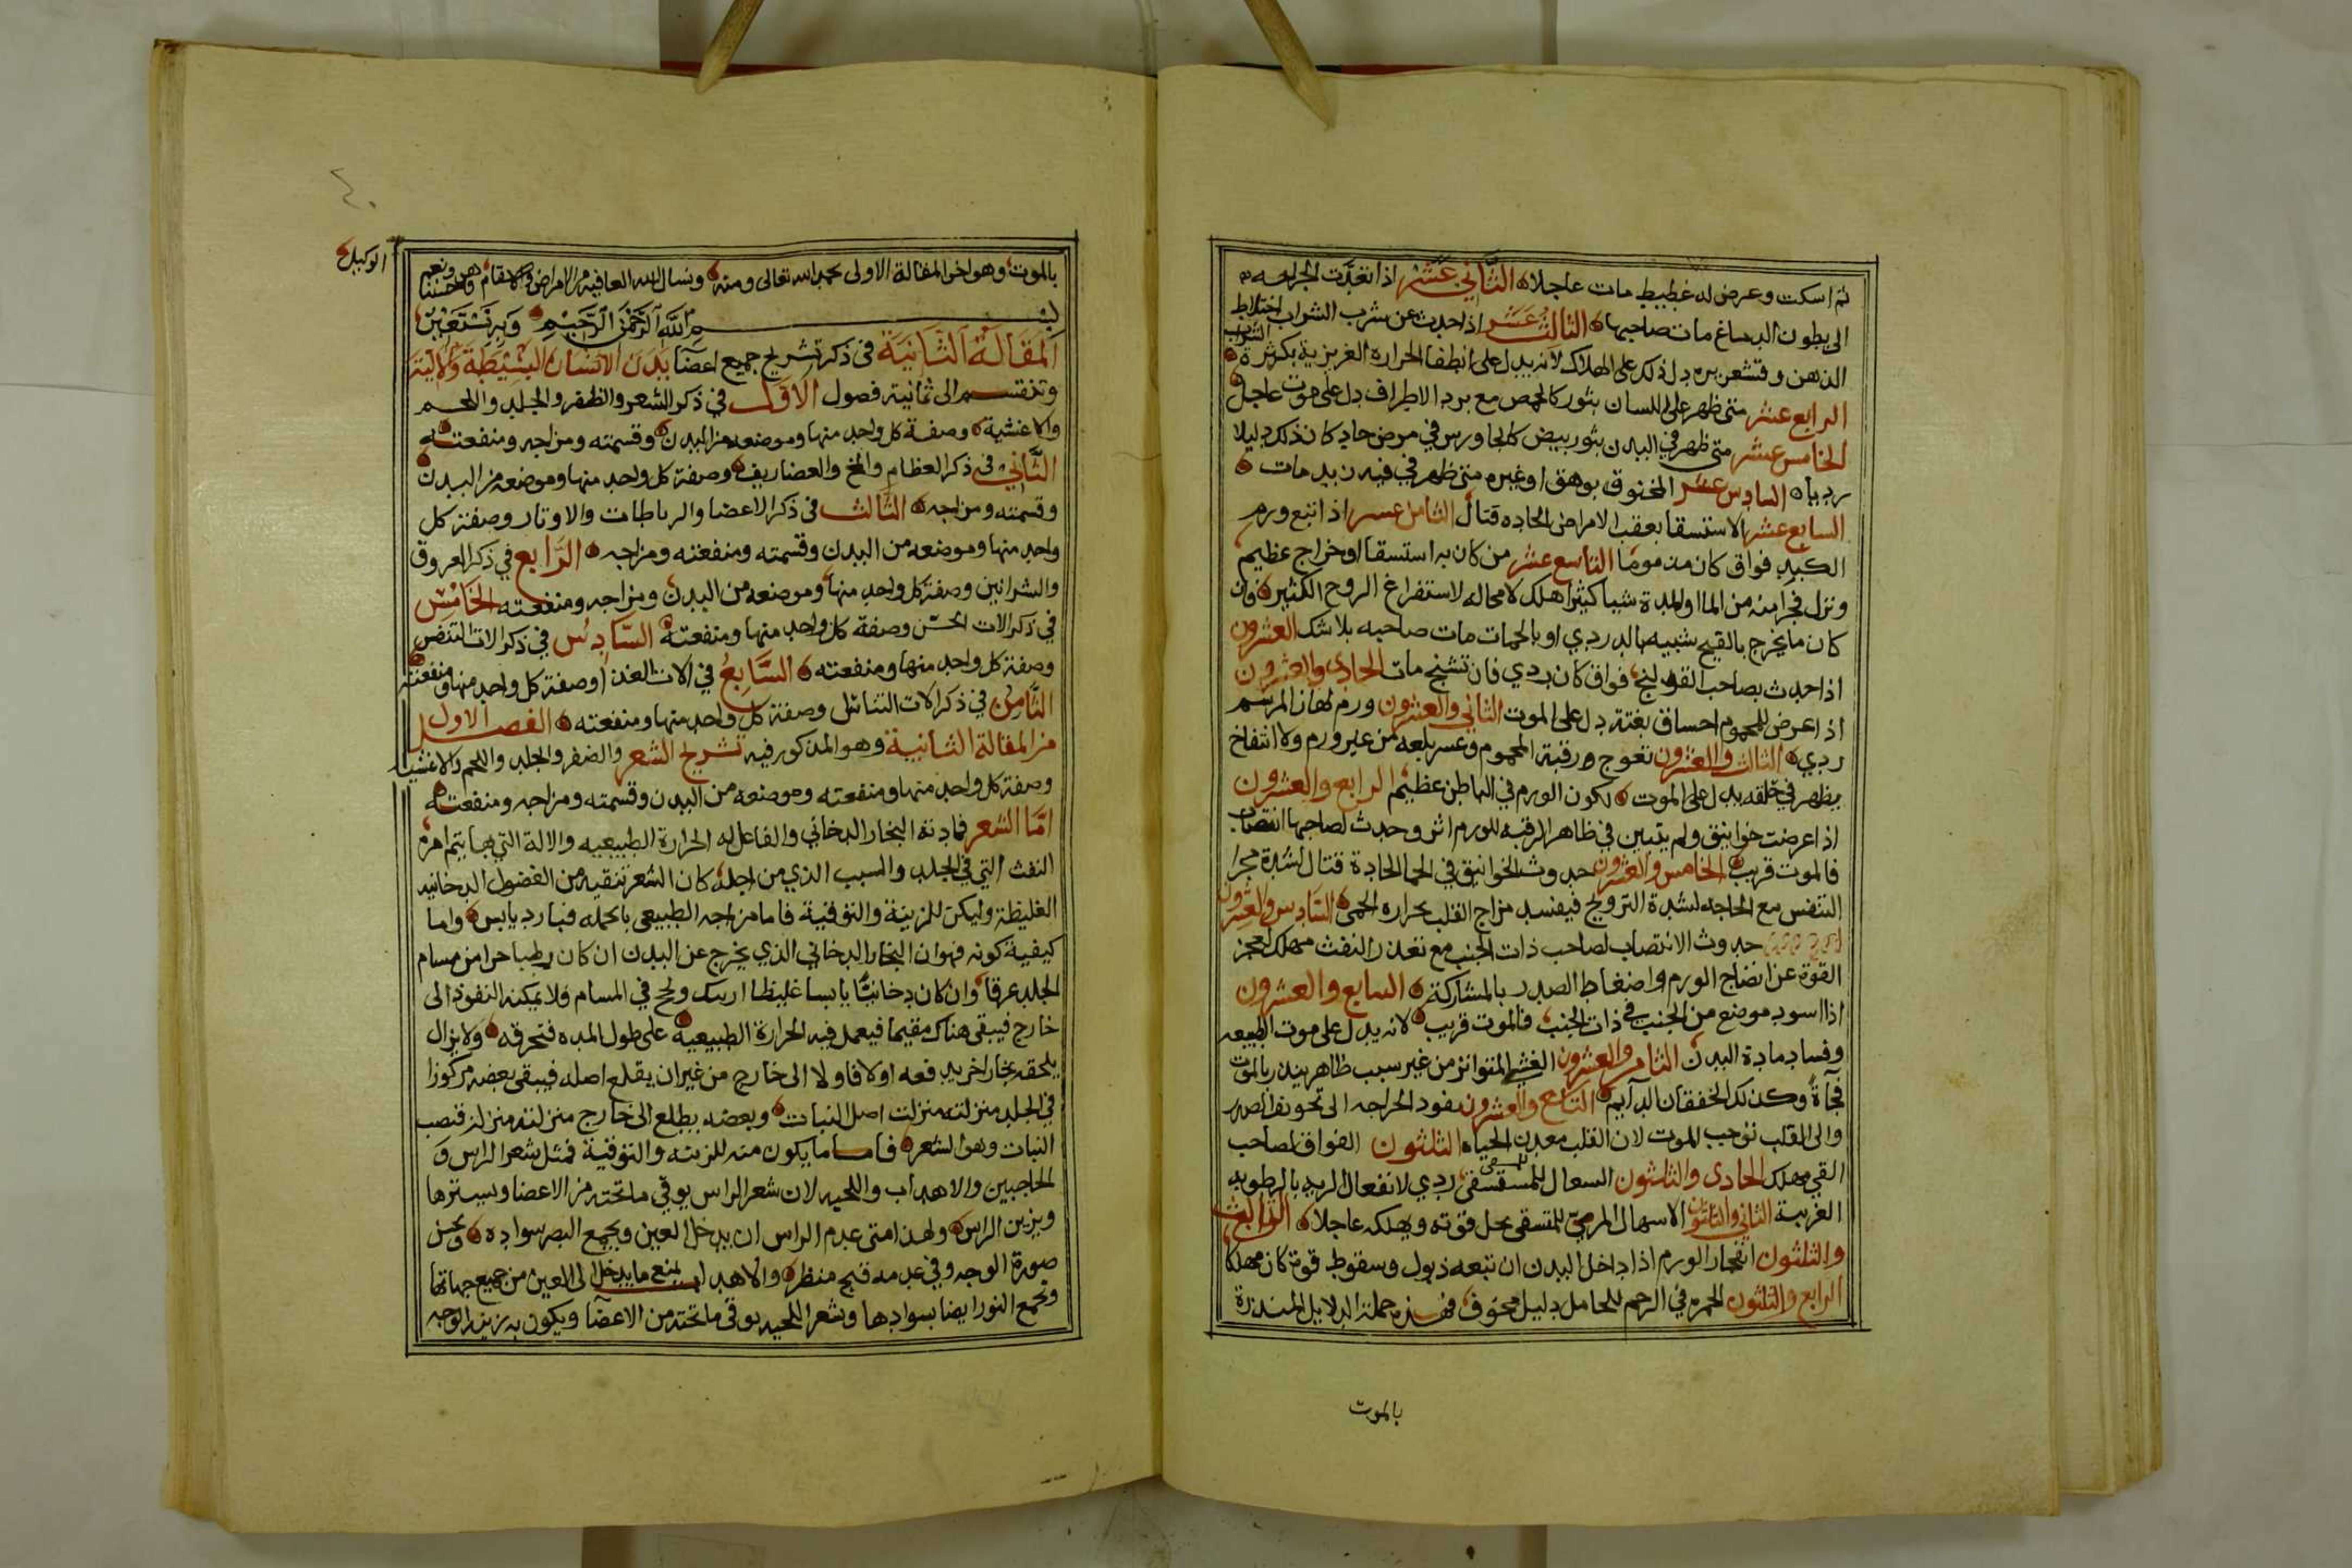 ثم اسكت وعرض له غطيط مات عاجلا الثاني عشر اذا تعدت الجراحه
الى بطون الدماغ مات صاحبها الثالث عشر اذا حدث عن شرب الشراب اختلاط
الذهن وقشعريره دل ذلك على الهلاك لانه يدل على انطفا الحراره الغريزية بكثرة الشراب
الرابع عشر متى ظهر على اللسان بثور كالحمص مع برد الاطراف دل على موت عاجل
الخامس عشر متى ظهر في البدن بثور بيض كالجاورس في مرض حاد كان ذلك دليلا
رديا السادس عشر المخنوق بوهق او غيره متى ظهر في فيه زبد مات
السابع عشر الاستسقا بعقب الامراض الحاده قتال الثامن عشر اذا اتبع ورم
الكبد فواق كان مذموما التاسع عشر من كان به استسقا او خراج عظيم
ونزل فجرا منه من الما او المدة شيا كثيرا هلك لا محاله لاستفراغ الروح الكثير فان
كان ما يخرج بالقيح شبيه بالدردي او بالحمات مات صاحبه بلا شك العشرون
اذا حدث بصاحب القولنج فواق كان ردي فان تشنج مات الحادي والعشرون
اذا عرض للمحموم اختناق بغتة دل على الموت الثاني والعشرون ورم لهاة المرسم
ردي الثالث والعشرون تعوج رقبة المحموم وعسر بلعه من غير ورم ولا انتفاخ
يظهر في حلقه يدل على الموت لكون الورم في الباطن عظيم الرابع والعشرون
اذا عرضت خوانيق ولم يتبين في ظاهر الرقبه للورم اثر وحدث لصاحبها انتصاب
فالموت قريب الخامس والعشرون حدوث الخوانيق في الحما الحادة قتال لشدة مجرا
التنفس مع الحاجه لشدة الترويح فيفسد مزاج القلب بحراره الحمى السادس والعشرون
حدوث الانتصاب لصاحب ذات الجنب مع تعذر النفث مهلك لعجز
القوة عن انضاج الورم واضغاط الصدر بالمشاركة السابع والعشرون
اذا اسود موضع من الجنب في ذات الجنب فالموت قريب لانه يدل على موت الطبيعه
وفساد مادة البدن الثامن والعشرون الغشي المتواتر من غير سبب ظاهر ينذر بالموت
فجأة وكذلك الخفقان الدايم التاسع والعشرون نفود الجراحه الى تجويف الصدر
والى القلب توجب الموت لان القلب معدن الحياه الثلثون الفواق لصاحب
القي مهلك الحادي والثلثون السعال للمستسقي ردي لانفعال الريه بالرطوبه
الغريبة الثاني والثلثون الاسهال المرمي للمتسقي يحل قوته ويهلكه عاجلا الثالث
والثلثون انفجار الورم اذا داخل البدن ان تبعه ذبول وسقوط قوة كان مهلكا
الرابع والثلثون الحمره في الرحم للحامل دليل مخوف فهذه جملة الدلايل المنذرة
بالموت
٤٠
بالموت وهو اخر المقالة الاولى بحمد الله تعالى ومنه ونسال الله العافيه من الامراض والاسقام وهو حسبنا ونعم
الوكيل
بسم الله الرحمن الرحيم وبه نستعين
المقالة الثانية في ذكر تشريح جميع اعضا بدن الانسان البسيطة والالية
وتنقسم الى ثمانية فصول الاول في ذكر الشعر والظفر والجلد واللحم
والاغشية وصفة كل واحد منها وموضعه من البدن وقسمته ومزاجه ومنفعته
الثاني في ذكر العظام والمخ والغضاريف وصفة كل واحد منها وموضعه من البدن
وقسمته ومزاجه الثالث في ذكر الاعضا والرباطات والاوتار وصفة كل
واحد منها وموضعه من البدن وقسمته ومنفعته ومزاجه الرابع في ذكر العروق
والشرايين وصفة كل واحد منها وموضعه من البدن ومزاجه ومنفعته الخامس
في ذكر الات الحس وصفة كل واحد منها ومنفعته السادس في ذكر الات التنفس
وصفة كل واحد منها ومنفعته السابع في الات الغذا وصفة كل واحد منها ومنفعته
الثامن في ذكر الات التناسل وصفة كل واحد منها ومنفعته الفصل الاول
من المقالة الثانية وهو المذكور فيه تشريح الشعر والضفر والجلد واللحم والاغشيا
وصفة كل واحد منها ومنفعته وموضعه من البدن وقسمته ومزاجه ومنفعته
اما الشعر فمادته البخار الدخاني والفاعل له الحرارة الطبيعيه والالة التي بها يتم امره
النفث التي في الجلد والسبب الذي من اجله كان الشعر تنقيه من الفضول الدخانيه
الغليظة وليكن للزينة والتوقية فاما مزاجه الطبيعي بالجمله فبارد يابس واما
كيفية كونه فهو ان البخار الدخاني الذي يخرج عن البدن ان كان رطبا حرا من مسام
الجلد عرقا وان كان دخانيا يابسا غليظا ارتبك ولحج في المسام فلا يمكنه النفوذ الى
خارج فيبقى هناك مقيما فيعمل فيه الحرارة الطبيعيه على طول المده فتحرقه ولا يزال
يلحقه بخار اخر يدفعه اولا فاولا الى خارج من غير ان يقلع اصله فيبقى بعضه مركوزا
في الجلد منزلته منزلت اصل النبات وبعضه يطلع الى خارج منزلته منزلة قصب
النبات وهو الشعر فاما ما يكون منه للزينه والتوقية فمثل شعر الراس و
الحاجبين والاهداب واللحيه لان شعر الراس يوقي ما تحته من الاعضا ويسترها
ويزين الراس ولهذا متى عدم الراس ان يدخل العين ويجمع البصر سواده ويحسن
صورة الوجه وفي عدمه قبح منظر والاهداب تمنع ما يدخل الى العين من جميع جهاتها
وتجمع النور ايضا بسوادها وشعر اللحيه يوقي ما تحته من الاعضا ويكون به زينة الوجه